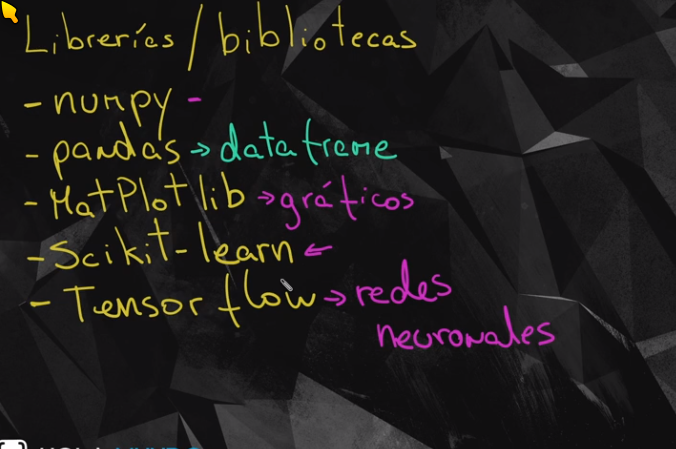 Librerías / bibliotecas
- numpy -
- pandas → dataframe
- MatPlotlib → gráficos
- Scikit-learn ←
- Tensor flow → redes
neuronales